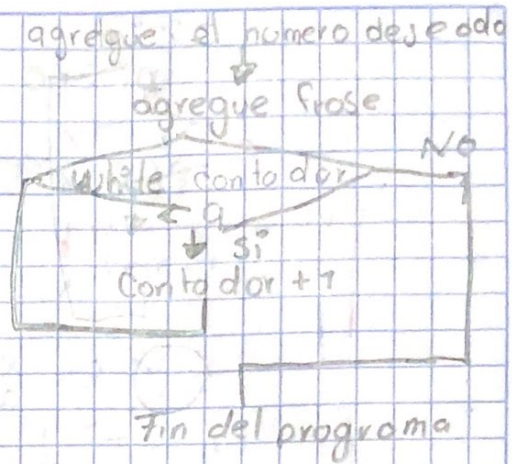 agregue el numero deseado
agregue frase
NO
while contador
< a
si
contador + 1
Fin del programa